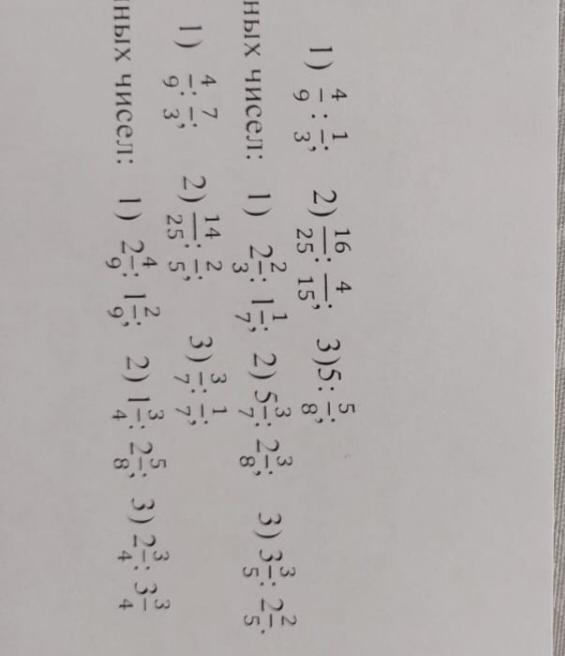 1) 4/9 : 1/3; 2) 16/25 : 4/15; 3)5 : 5/8;
ных чисел: 1) 2 2/3 : 1 1/7; 2) 5 3/7 : 2 3/8; 3) 3 3/5 : 2 2/5.
1) 4/9 : 7/3; 2) 14/25 : 2/5; 3) 3/7 : 1/7;
нных чисел: 1) 2 4/9 : 1 2/9; 2) 1 3/4 : 2 5/8; 3) 2 3/4 : 3 3/4